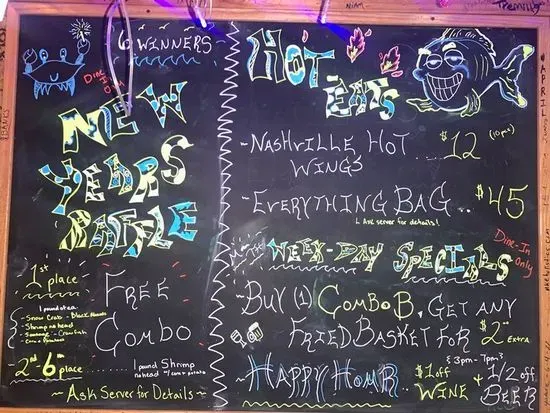 6 WINNERS
DINE IN ONLY
NEW
YEARS
RAFFLE
1st place
FREE
COMBO
1 pound each
- Snow Crab
- Shrimp no head
2nd - 6th place
1 pound Shrimp
no head
~ ASK SERVER FOR DETAILS ~
HOT
EATS
~NASHVILLE HOT
WINGS ... $12 (10pcs)
~EVERYTHING BAG .. $45
L ASK server for details!
WEEK-DAY SPECIALS
DINE-IN ONLY
~BUY (1) COMBO B, GET ANY
FRIED BASKET FOR $2 EXTRA
{3pm-7pm}
~HAPPY HOUR .. $1 off WINE + 1/2 off BEER
APRIL